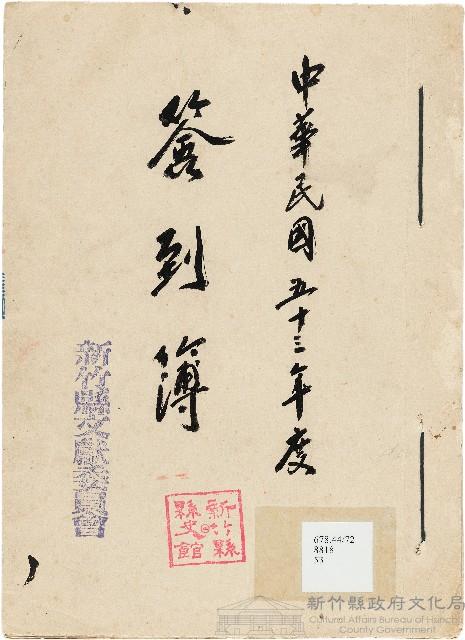 中華民國五十三年度
簽到簿
新竹縣文獻委員會
新竹縣
縣史館
678.44/72
8818
53
新竹縣政府文化局
Cultural Affairs Bureau of Hsinchu
County Government